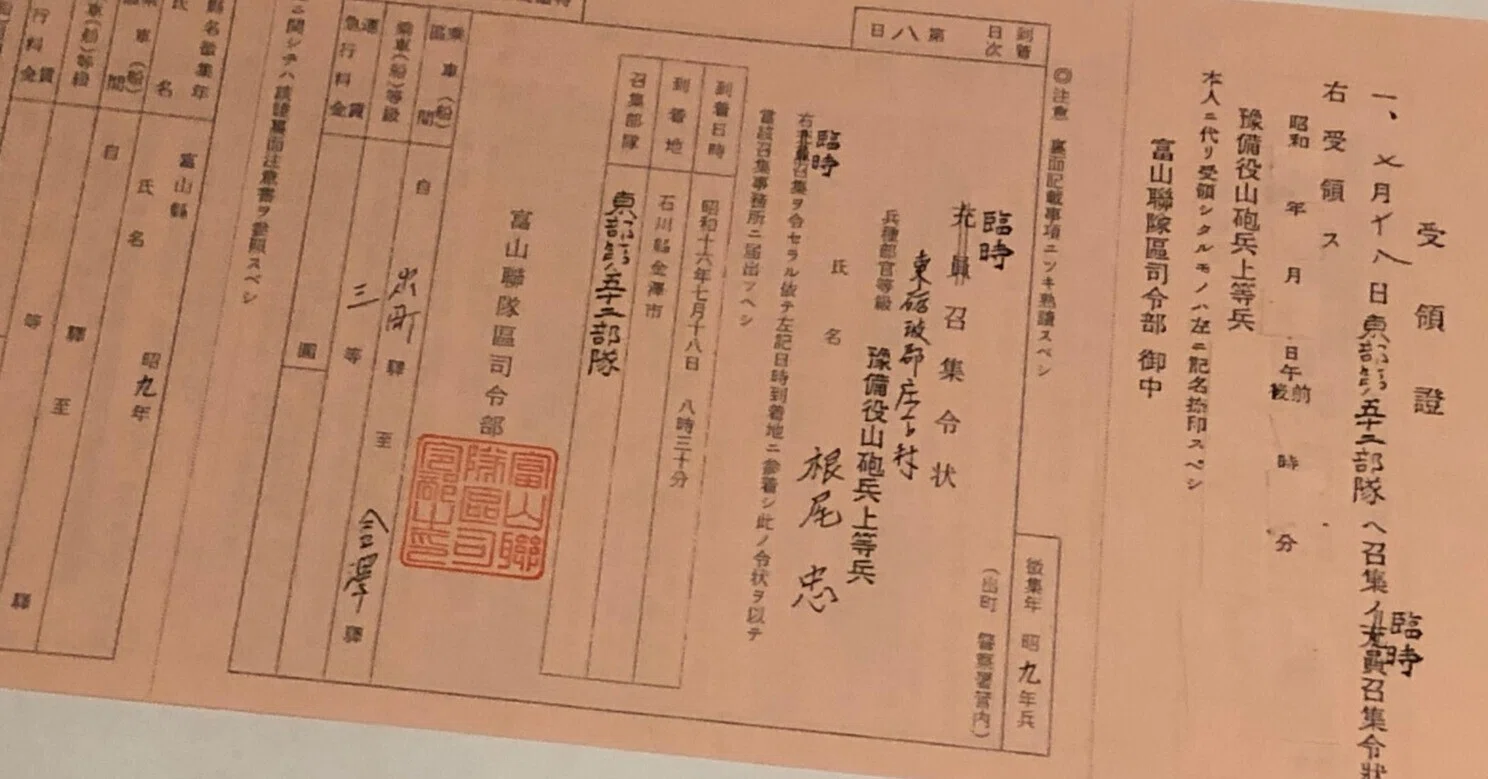 受領證
一、七月十八日東部第五十二部隊ヘ召集ノ充員召集令狀
臨時
右受領ス
昭和 年 月 日午前後 時 分
豫備役山砲兵上等兵
本人ニ代リ受領シタルモノハ左ニ記名捺印スベシ
富山聯隊區司令部 御中
◎注意 裏面記載事項ニツキ熟讀スベシ
到着日次 第八日
徵集年 昭九年兵
(出町 警察署管內)
臨時
充員召集令狀
東礪波郡庄下村
兵種部官等級 豫備役山砲兵上等兵
氏名 根尾忠
臨時
右充員召集ヲ令セラル依テ左記日時到着地ニ參着シ此ノ令狀ヲ以テ
當該召集事務所ニ届出ツヘシ
到着日時 昭和十六年七月十八日 八時三十分
到着地 石川縣金澤市
召集部隊 東部第五十二部隊
富山聯隊區司令部
富山聯隊區司令部之印
乘車(船)區間 自 出町 驛 至 金澤 驛
乘車(船)等級 三等
運賃急行料金 圓
ニ關シテハ該證裏面注意書ヲ參照スベシ
縣名徵集年 富山縣 昭九年
氏名 氏名
乘車(船)間 自 驛 至 驛
車(船)等級 等
行料金